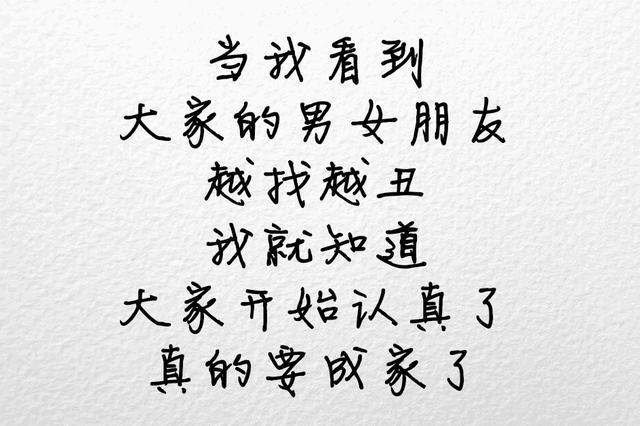 当我看到
大家的男女朋友
越找越丑
我就知道
大家开始认真了
真的要成家了